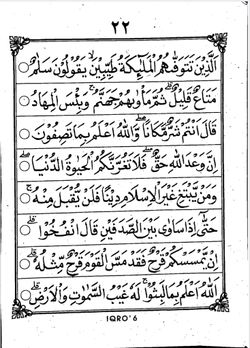 ٢٢
الَّذِيْنَ تَتَوَفّٰىهُمُ الْمَلٰٓئِكَةُ طَيِّبِيْنَ ۙ يَقُوْلُوْنَ سَلٰمٌ
مَتَاعٌ قَلِيْلٌ ۗ ثُمَّ مَأْوٰىهُمْ جَهَنَّمُ ۗ وَبِئْسَ الْمِهَادُ
قَالَ اَنْتُمْ شَرٌّ مَّكَانًا ۚ وَاللّٰهُ اَعْلَمُ بِمَا تَصِفُوْنَ
اِنَّ وَعْدَ اللّٰهِ حَقٌّ ۗ فَلَا تَغُرَّنَّكُمُ الْحَيٰوةُ الدُّنْيَا ۗ
وَمَنْ يَّبْتَغِ غَيْرَ الْاِسْلَامِ دِيْنًا فَلَنْ يُّقْبَلَ مِنْهُ ۚ
حَتّٰىٓ اِذَا سَاوٰى بَيْنَ الصَّدَفَيْنِ قَالَ انْفُخُوْا ۗ
اِنْ يَّمْسَسْكُمْ قَرْحٌ فَقَدْ مَسَّ الْقَوْمَ قَرْحٌ مِّثْلُهٗ ۗ
اللّٰهُ اَعْلَمُ بِمَا لَبِثُوْا ۚ لَهٗ غَيْبُ السَّمٰوٰتِ وَالْاَرْضِ ۗ
IQRO'6